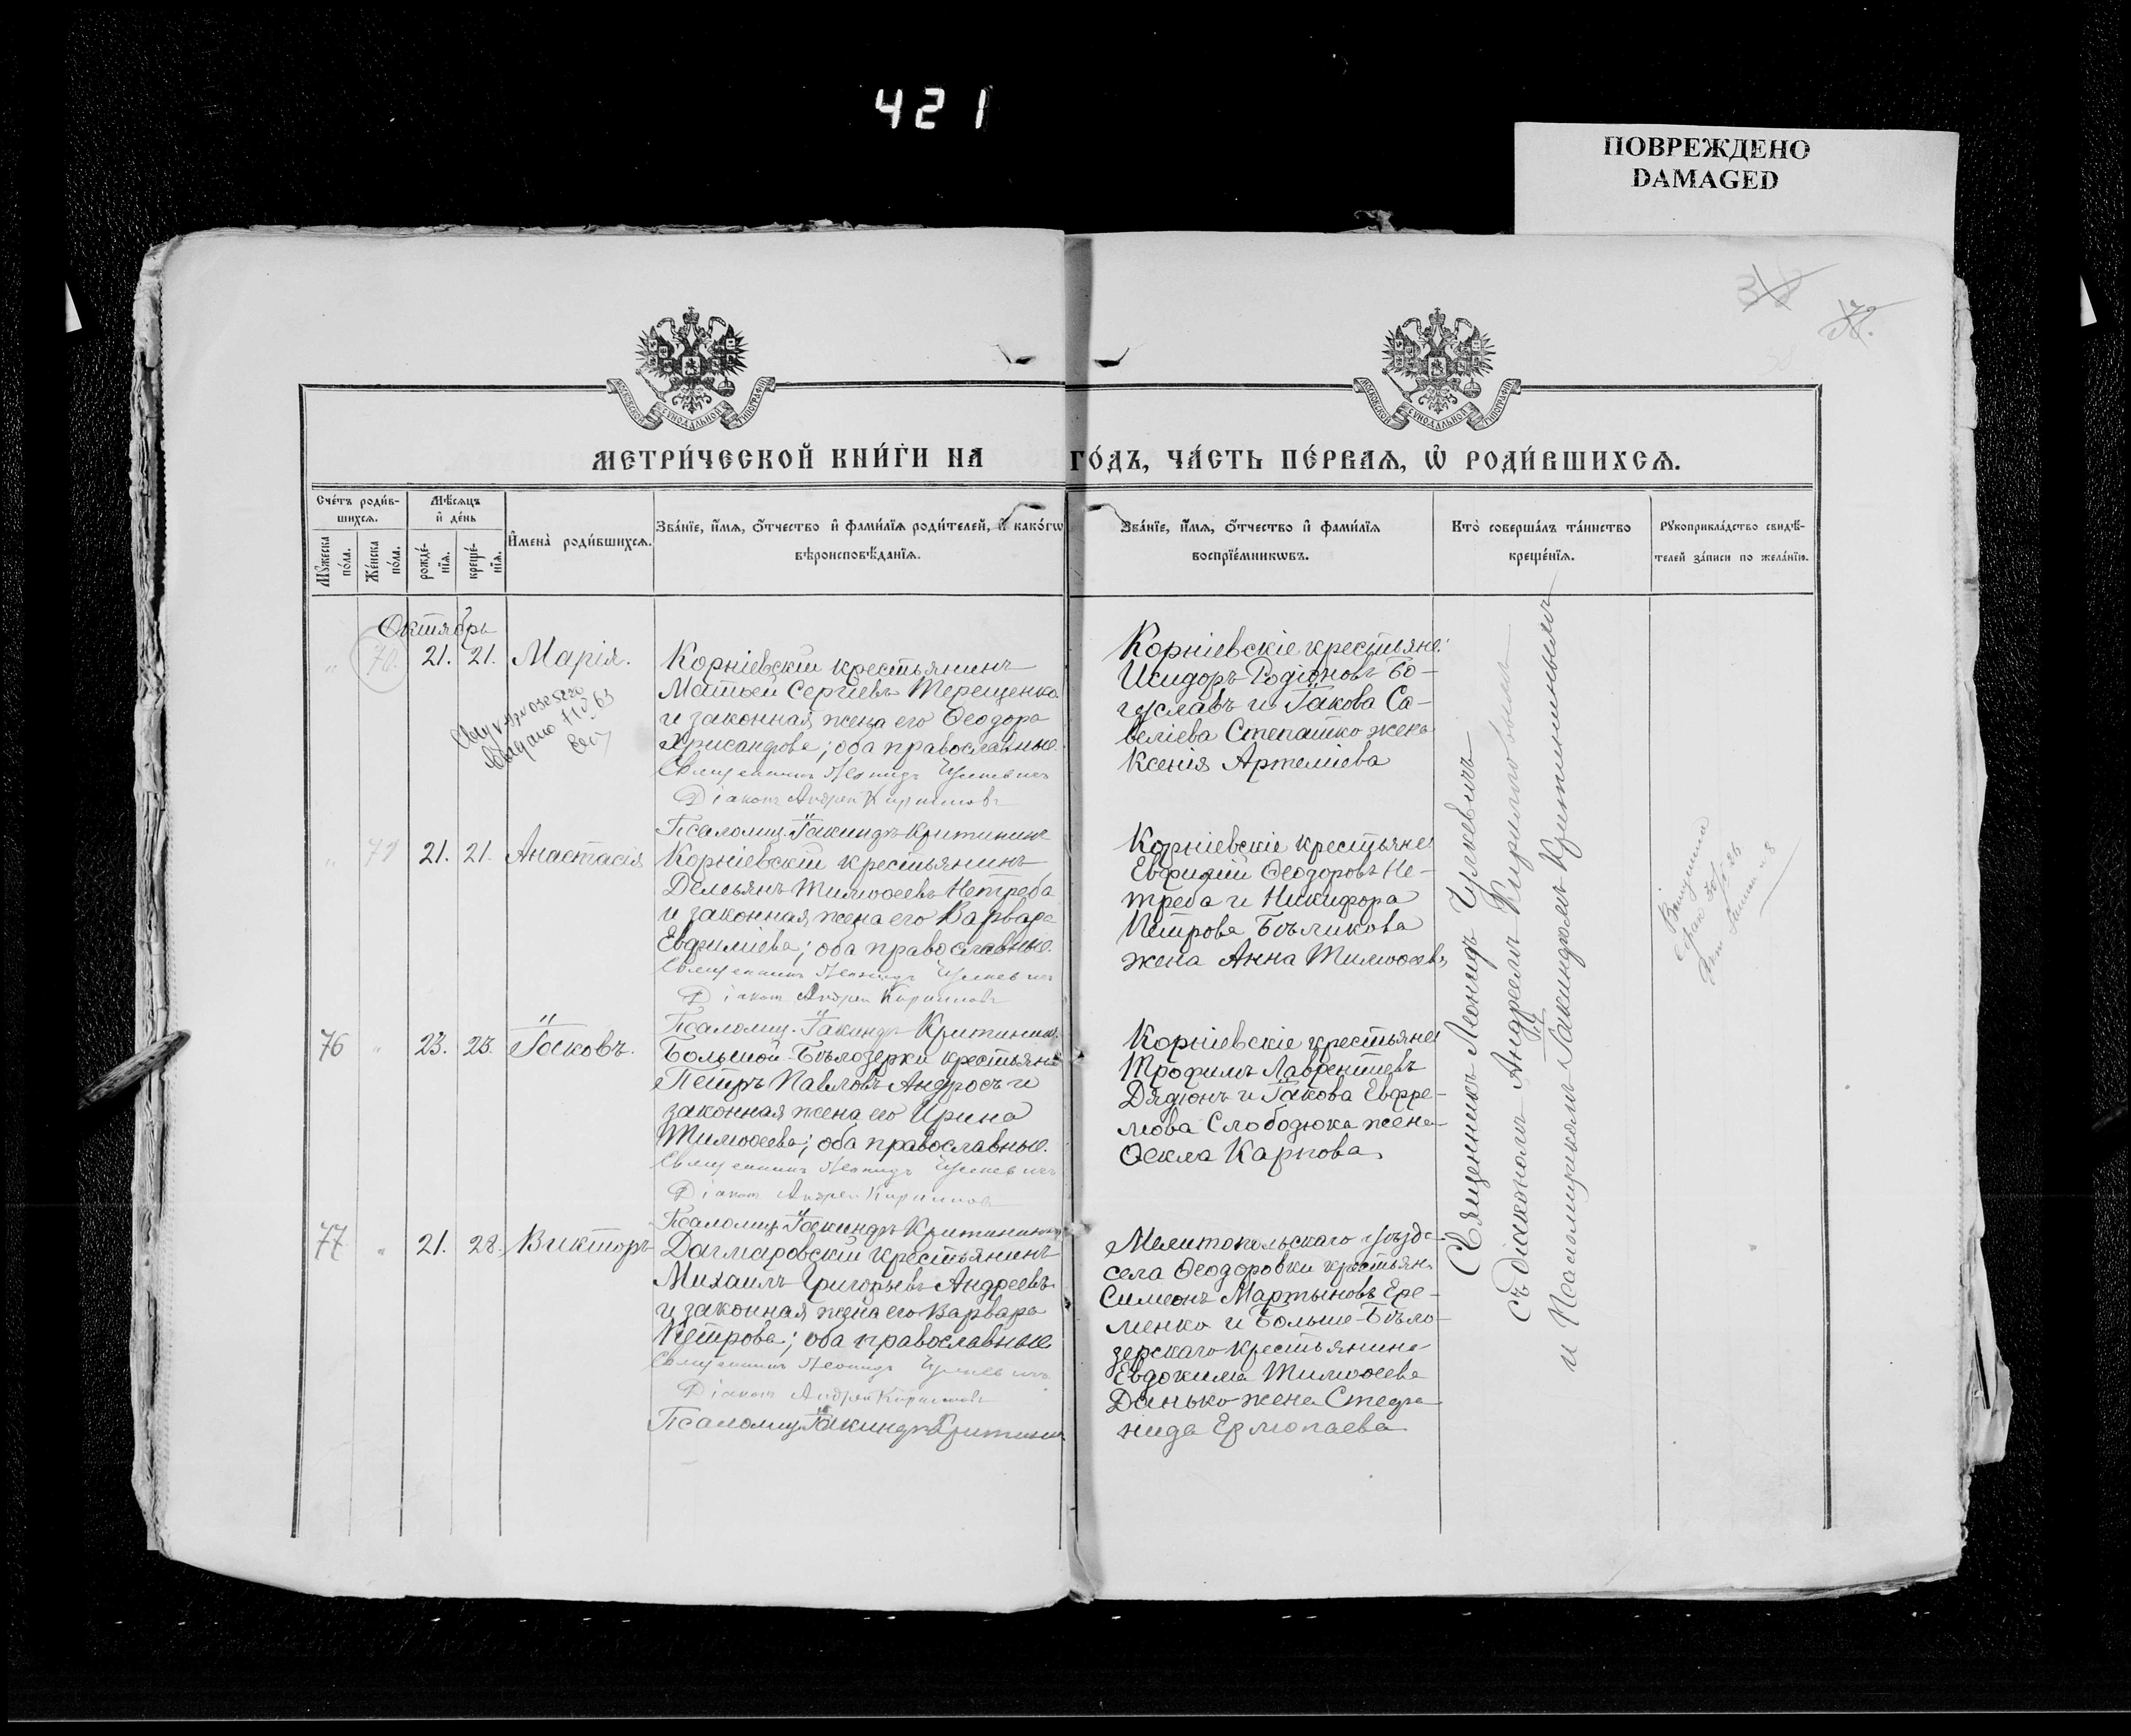 421
ПОВРЕЖДЕНО
DAMAGED
МЕТРИ́ЧЕСКОЙ КНИ́ГИ НА ГО́ДЪ, ЧА́СТЬ ПЕ́РВАЯ, Ѡ РОДИ́ВШИХСЯ.
Сче́тъ роди́вшихся.
Му́жеска по́ла.
Же́нска по́ла.
Мѣ́сяцъ и де́нь
рожде́нїя.
креще́нїя.
Имена̀ роди́вшихся.
Зва́нїе, и́мя, о́тчество и фами́лїя роди́телей, и како́гѡ
вѣроисповѣ́данїя.
Зва́нїе, и́мя, о́тчество и фами́лїя
воспрїе́мникѡвъ.
Кто̀ соверша́лъ та́инство
креще́нїя.
Рꙋкоприкла́дство свидѣ́-
телей за́писи по жела́нїю.
Октябрь
" 70. 21. 21. Марія.
Корніевскій крестьянинъ
Матѳей Сергіевъ Терещенко
и законная жена его Ѳеодора
Хрисанфова; оба православные.
Священникъ Леонидъ
Діаконъ Андрей Кирилловъ
Псаломщ. Іакинѳъ Критининъ
Корніевскіе крестьяне:
Исидоръ Родіоновъ Бо-
гуславъ и Іакова Са-
веліева Степашко жена
Ксенія Артеміева
" 71 21. 21. Анастасія
Корніевскій крестьянинъ
Демьянъ Тимоѳеевъ Нетреба
и законная жена его Варвара
Евфиміева; оба православные.
Священникъ Леонидъ
Діаконъ Андрей Кирилловъ
Псаломщ. Іакинѳъ Критининъ
Корніевскіе крестьяне
Евфимій Ѳеодоровъ Не-
треба и Никифора
Петрова Бѣликова
жена Анна Тимоѳеева
76 " 23. 23. Іаковъ.
Большой-Бѣлозерки крестьянинъ
Петръ Павловъ Андросъ и
законная жена его Ирина
Тимоѳеева; оба православные.
Священникъ Леонидъ
Діаконъ Андрей Кирилловъ
Псаломщ. Іакинѳъ Критининъ
Корніевскіе крестьяне
Трофимъ Лаврентіевъ
Дядюнъ и Іакова Ефре-
мова Слободюка жена
Ѳекла Карпова
77 " 21. 28. Викторъ
Дагмаровскій крестьянинъ
Михаилъ Григорьевъ Андреевъ
и законная жена его Варвара
Петрова; оба православные
Священникъ Леонидъ
Діаконъ Андрей Кирилловъ
Псаломщ. Іакинѳъ Критининъ
Мелитопольскаго уѣзда
села Ѳеодоровки крестьян.
Симеонъ Мартыновъ Ере-
менко и Больше-Бѣло-
зерскаго крестьянина
Евдокима Тимоѳеева
Данько жена Стефа
нида Ермолаева
Священникъ Леонидъ
съ Діакономъ Андреемъ Кирилловымъ
и Псаломщикомъ Іакинѳомъ Критининымъ